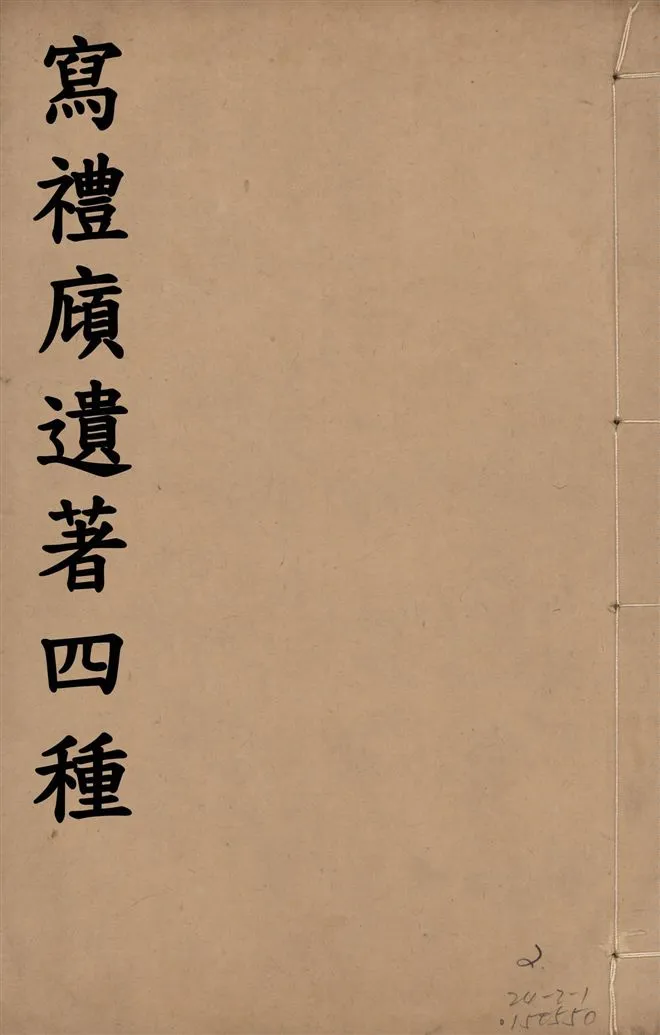 寫禮廎遺著四種
2.
24-2-1